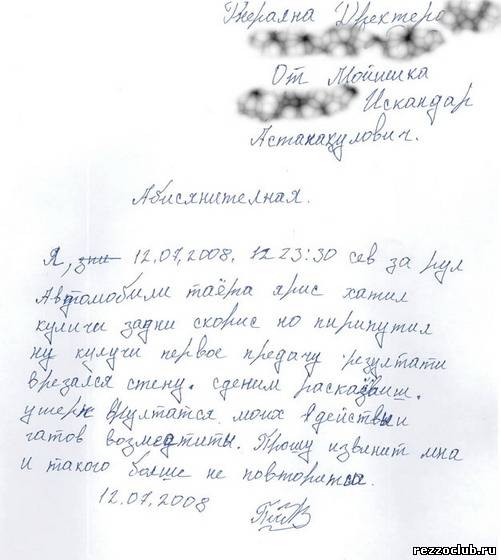 Гнерална Дректеро
От Мойшика
Искандар
Астанакулович.
Абиснителная.
Я, 12.07.2008. 12 23:30 сев за рул
Автомобили таёта ярис хатил
куличи задни скорис но пирипутил
ну кулучи первое предачу резултати
врезался стену. сденим
моих в действи
гатов возмедтиты. Прошу извинит мна
и такого болше не повторитса.
12.07.2008
rezzoclub.ru